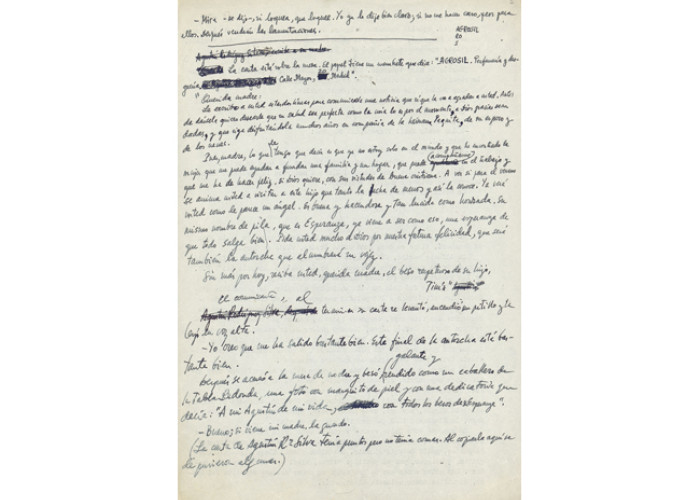 —Mira —se dijo—, si luquea, que luquee. Yo ya lo dije bien claro; si no me hacen caso, peor para
ellos. Después vendrán las lamentaciones.
AGROSIL
20
S
La carta está sobre la mesa. El papel tiene un membrete que dice: "AGROSIL. Perfumería y dro-
guería Calle Mayor, Madrid".
"Querida madre:
Le escribo a usted estas líneas para comunicarle una noticia que sé que le va a agradar a usted, antes
de decirle quiero desearle que su salud sea perfecta como la mía lo es por el momento, a Dios gracias sean
dadas, y que siga disfrutándola muchos años en compañía de la hermana Paquita, de su esposo y
de los nenes.
Pues, madre, lo que tengo que decir es que ya no estoy solo en el mundo y que he encontrado la
mujer que me puede ayudar a fundar una familia y un hogar, que puede acompañarme en el trabajo y
que me ha de hacer feliz, si Dios quiere, con sus virtudes de buena cristiana. A ver si para el verano
se anima usted a visitar a este hijo que tanto la echa de menos y así la conoce. Le será
usted como le parece un ángel. Es buena y hacendosa y tan lucida como honrada. Su
mismo nombre de pila, que es Esperanza, ya viene a ser como eso, una esperanza de
que todo salga bien. Pida usted mucho a Dios por nuestra futura felicidad, que será
también la antorcha que alumbrará su vejez.
Sin más por hoy, reciba usted, querida madre, el beso respetuoso de su hijo,
Tinín"
el al
terminar su carta se levantó, encendió un pitillo y la
leyó en voz alta.
—Yo creo que me ha salido bastante bien. Este final de la antorcha está bas-
tante bien.
galante y
Después se acercó a la mesa de noche y besó, rendido como un caballero de
la Tabla Redonda, una foto con marquito de piel y con una dedicatoria que
decía: "A mi Agustín de mi vida, con todos los besos de su Esperanza".
—Bueno; si viene mi madre, la guardo.
(La carta de Agustín R. Silva tenía puntos pero no tenía comas. Al copiarla aquí se
le pusieron algunas.)